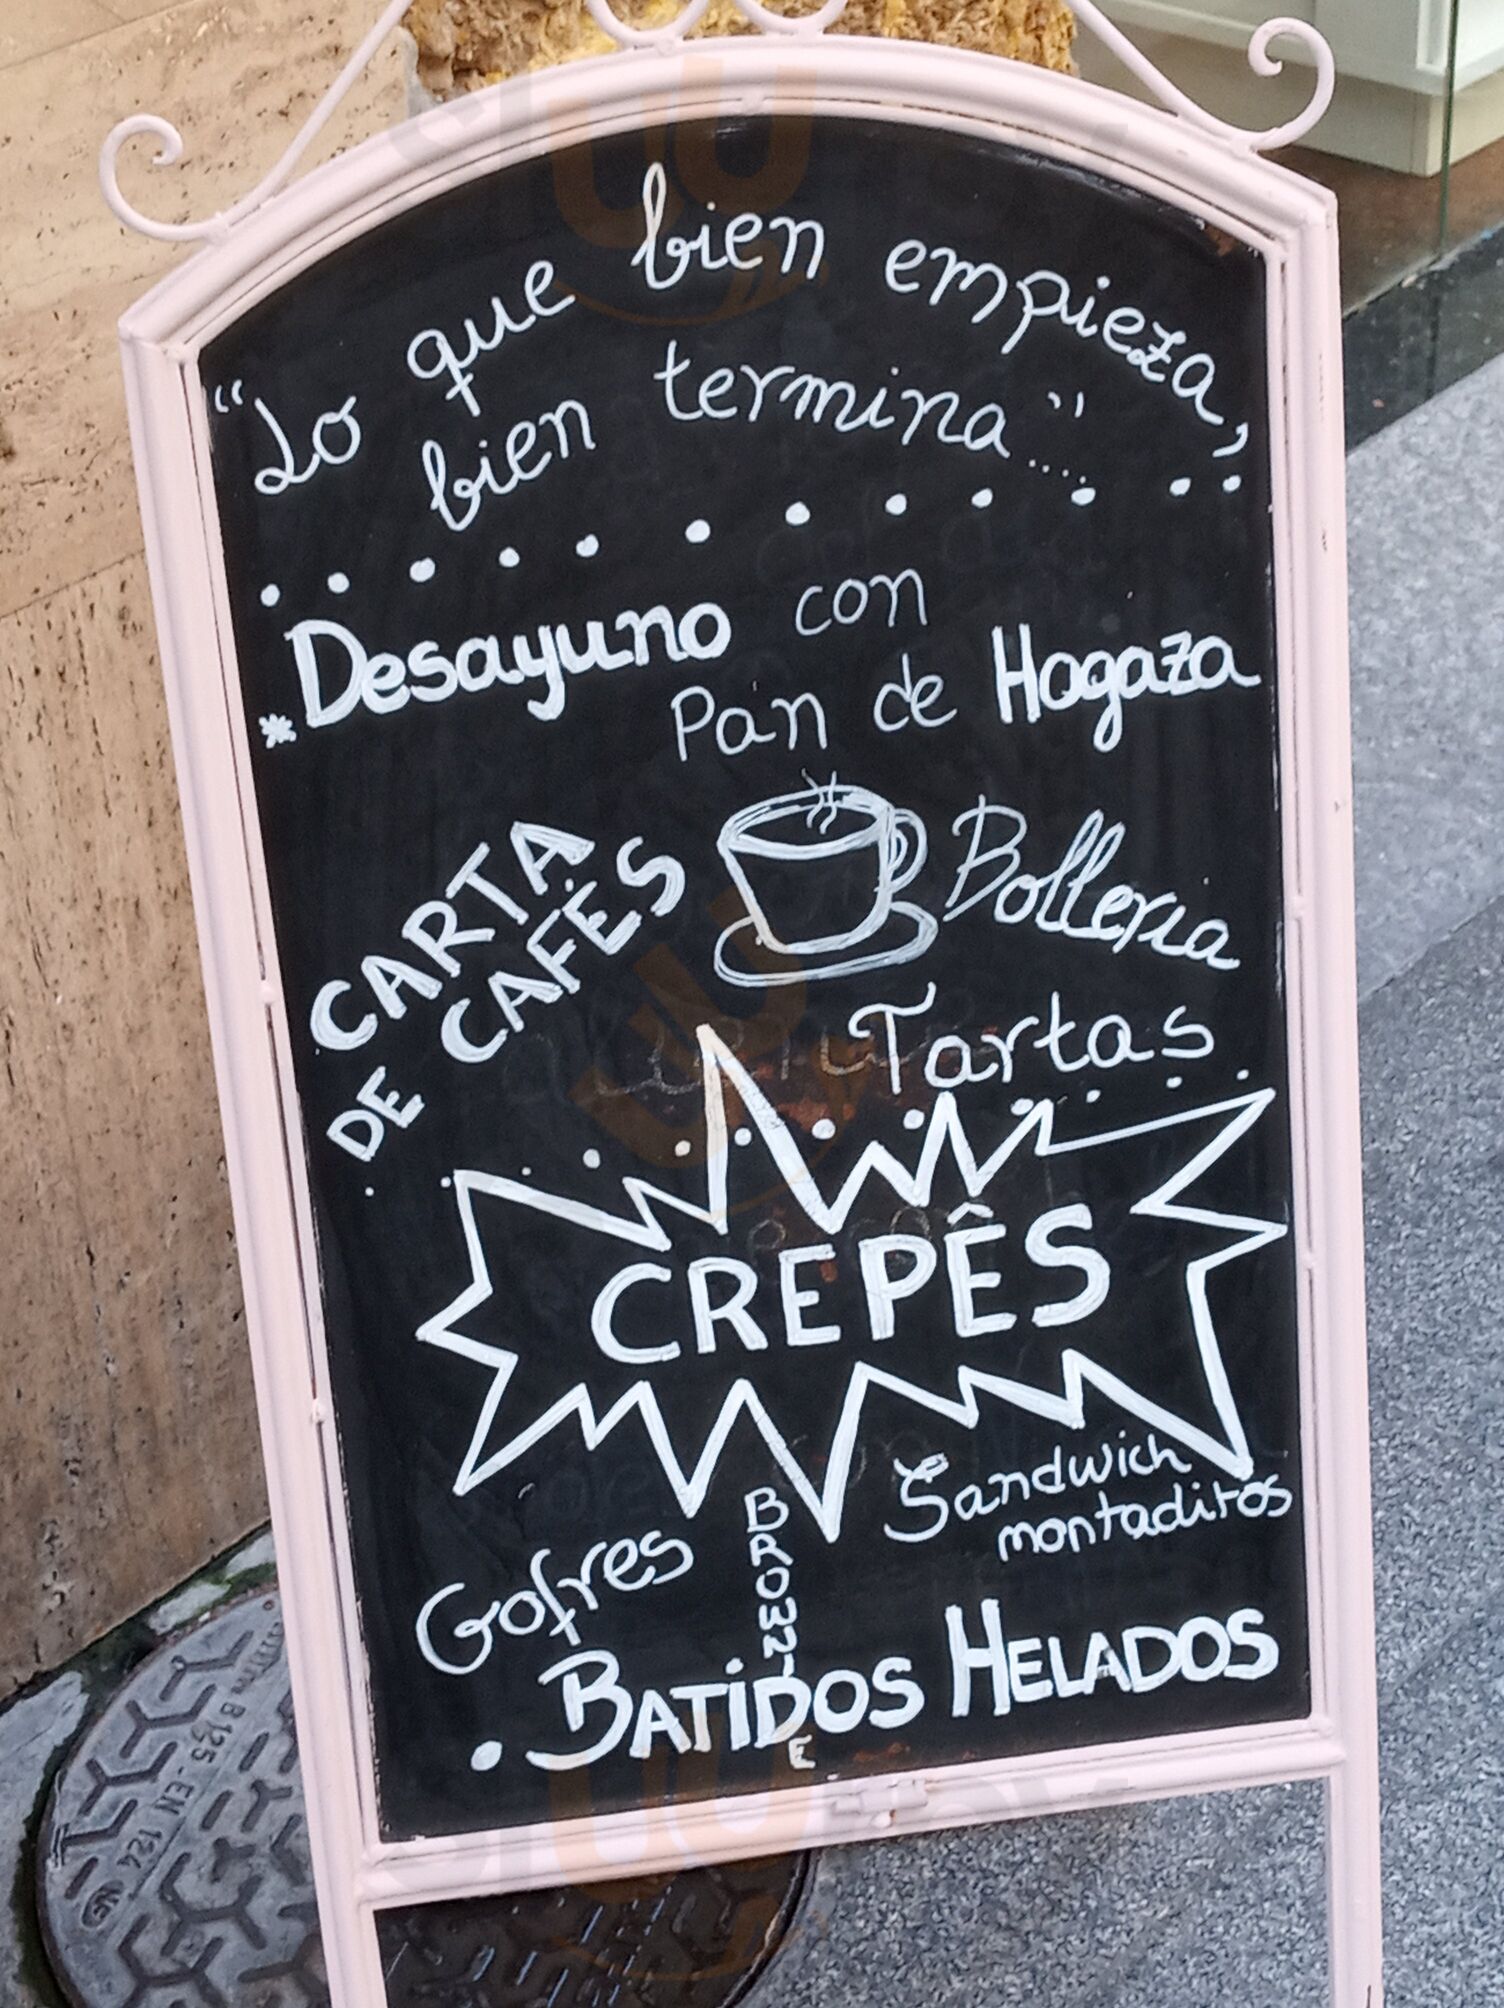 "Lo que bien empieza,
bien termina....."
*Desayuno con
Pan de Hogaza
CARTA
DE CAFÉS
Bolleria
Tartas
CREPÊS
Gofres
BROWNIE
Sandwich
montaditos
BATIDOS HELADOS
B125-EN 124